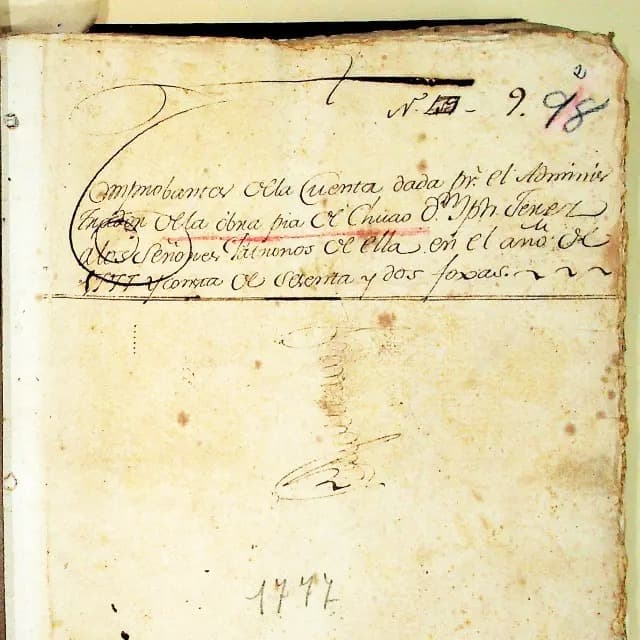 N. 9. 98
2
Comprobantes de la Cuenta dada pr. el Adminis
trador de la obra pia de Chuao Dn. Jph. Perez
a los Señores Patronos de ella en el año de
1777 y consta de sesenta y dos foxas.
1777